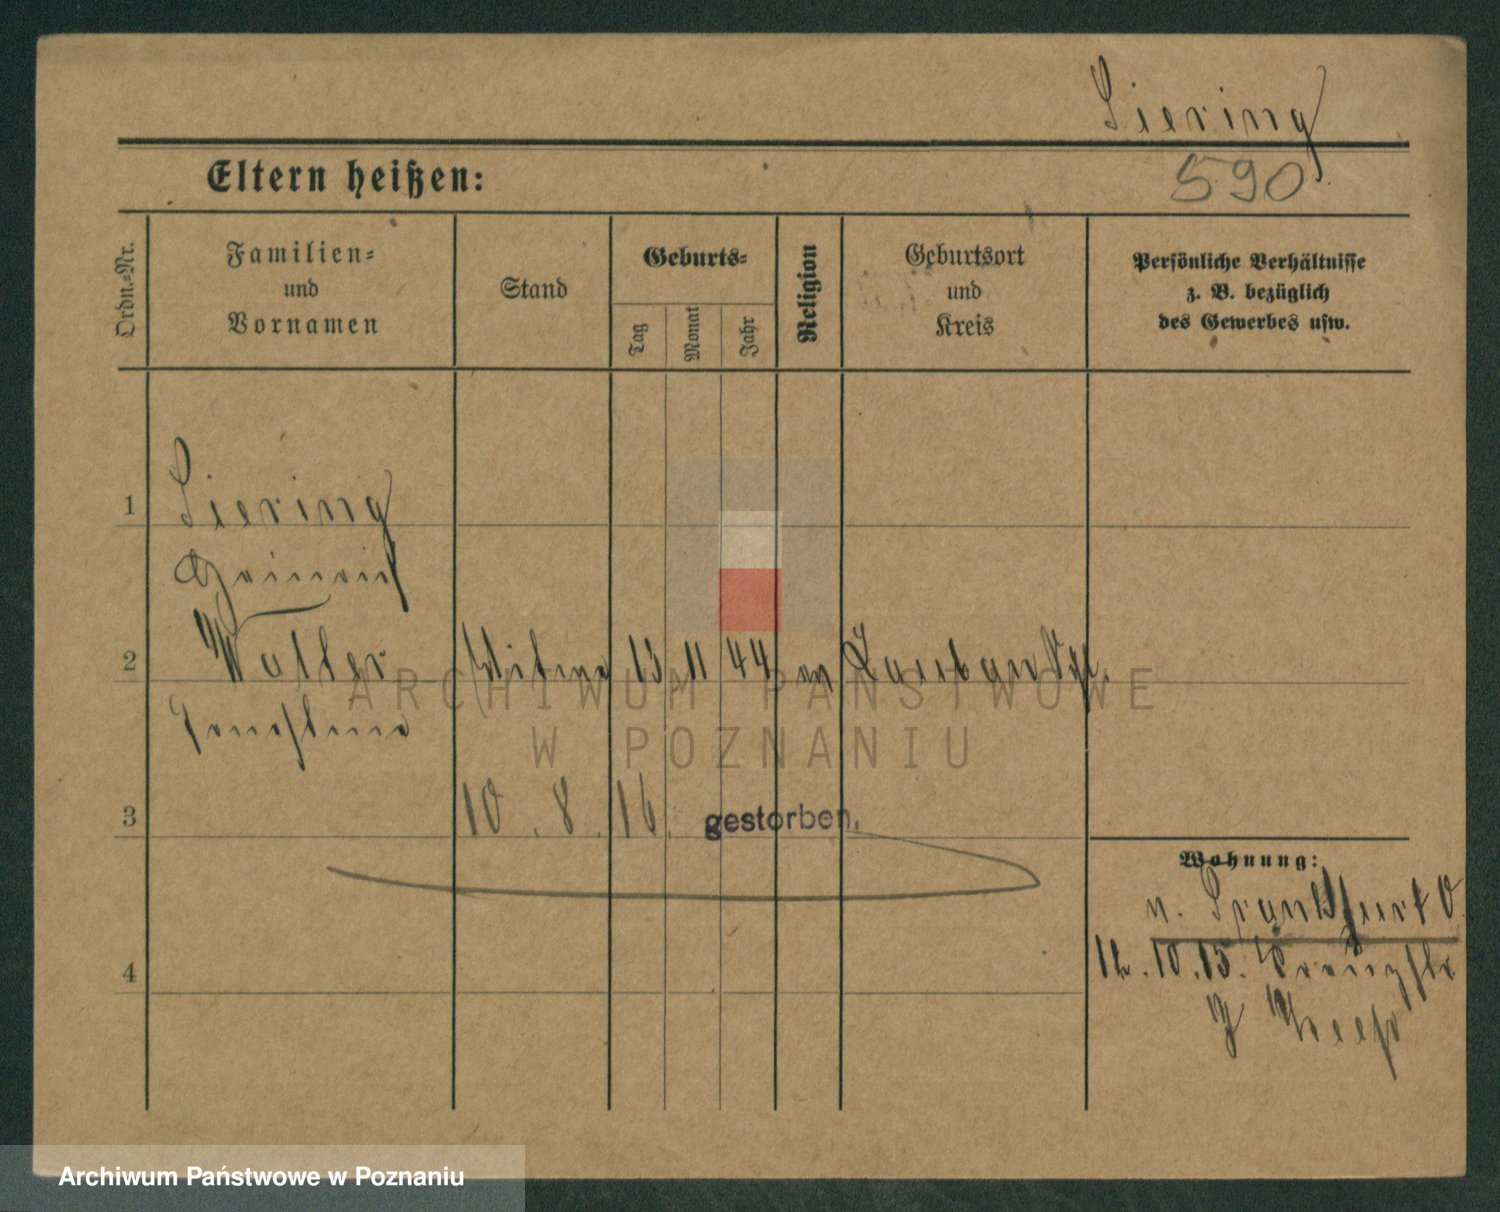 Siering
590
Eltern heißen:
Ordn.-Nr.
Familien-
und
Vornamen
Stand
Geburts-
Tag
Monat
Jahr
Religion
Geburtsort
und
Kreis
Persönliche Verhältnisse
z. B. bezüglich
des Gewerbes usw.
1
Siering
2
Witwe 13 11 44 Lauban
ARCHIWUM PAŃSTWOWE
W POZNANIU
Ernestine
3
10. 8. 16. gestorben.
Wohnung:
n. Frankfurt O.
12.10.15.
4
Archiwum Państwowe w Poznaniu